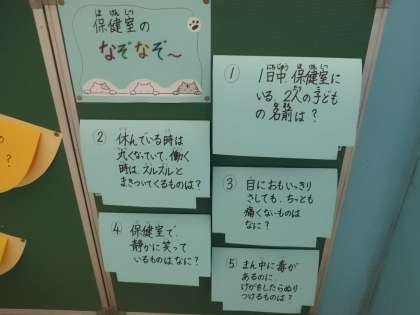 保健室の
なぞなぞ〜
① 1日中、保健室に
いる、2人の子ども
の名前は？
② 休んでいる時は
丸くなっていて、働く
時は、ズルズルと
まきついてくるものは？
③ 目におもいっきり
さしても、ちっとも
痛くないものは
なに？
④ 保健室で、
静かに笑って
いるものはなに？
⑤ まん中に毒が
あるのに、
けがをしたらぬり
つけるものは？
？